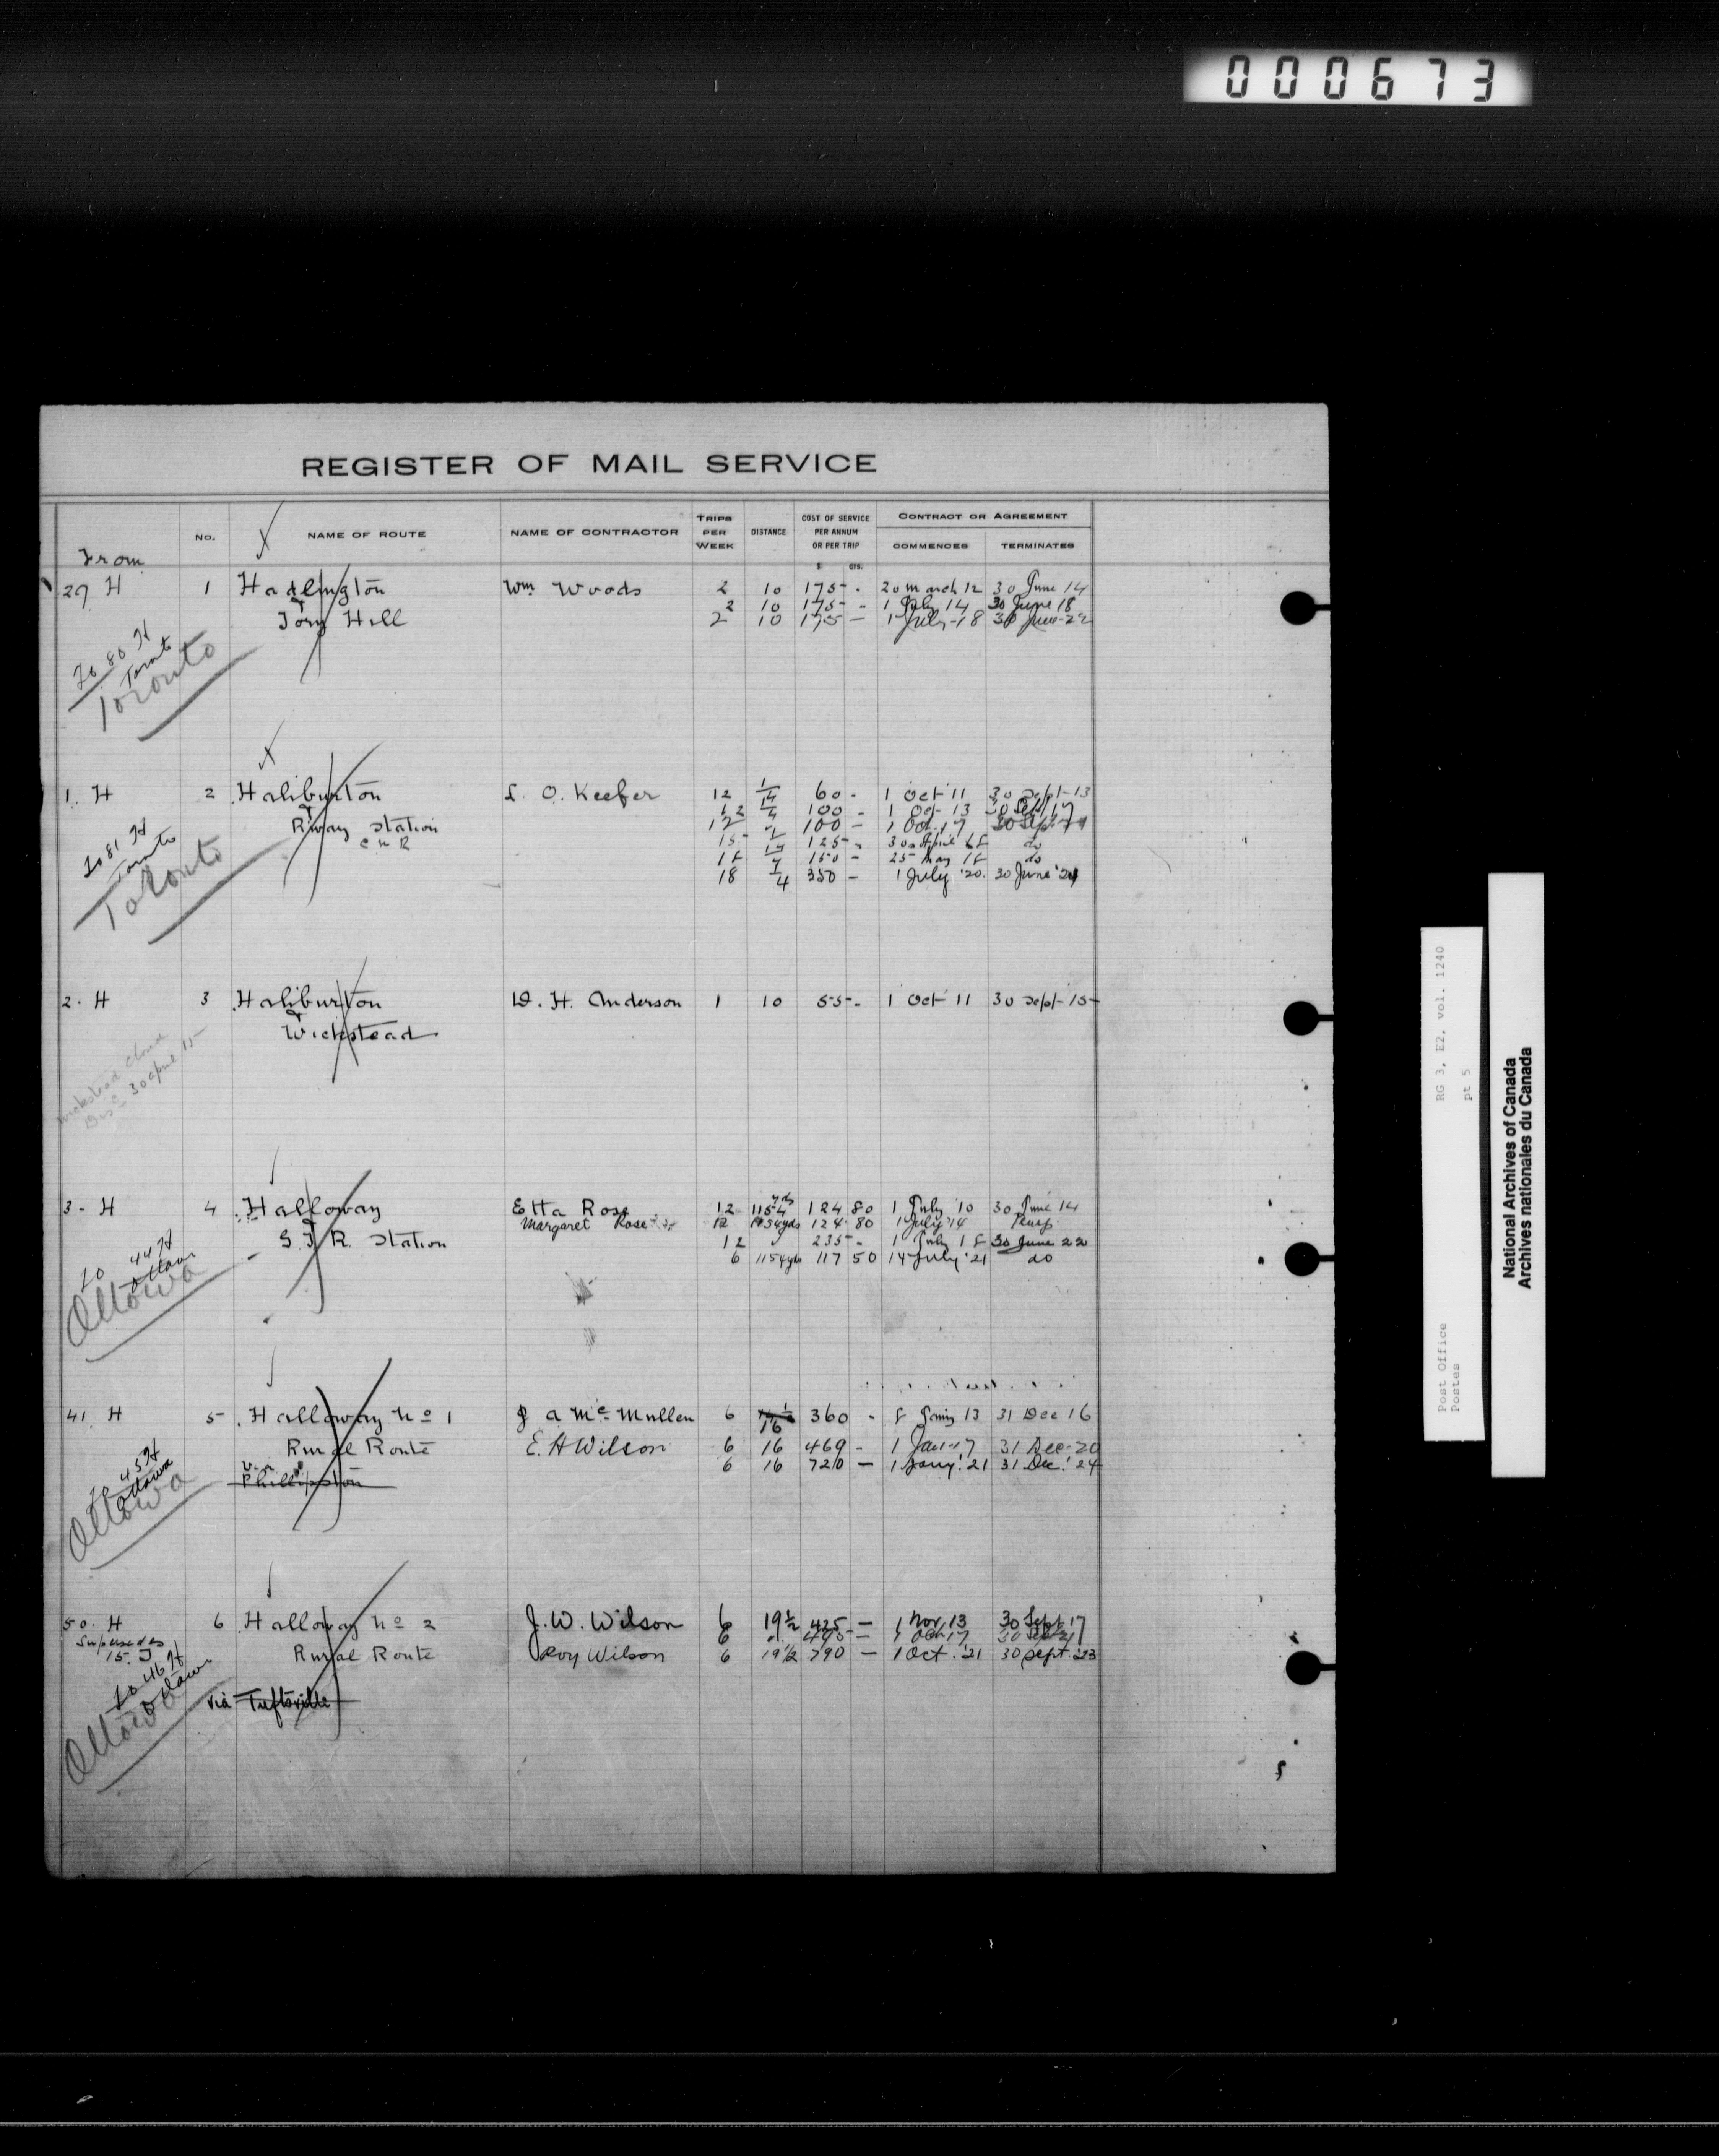 000673
REGISTER OF MAIL SERVICE
From
No.
NAME OF ROUTE
NAME OF CONTRACTOR
TRIPS PER WEEK
DISTANCE
COST OF SERVICE PER ANNUM OR PER TRIP
$ cts.
CONTRACT OR AGREEMENT
COMMENCES
TERMINATES
27 H 1 Hadlington Wm Woods 2 10 175 - 20 March 12 30 June 14
& 2 10 175 - 1 July 14 30 June 18
Tory Hill 2 10 175 — 1 July 18 30 June 22
To 80 H
Toronto
Toronto
1. H 2 Haliburton L. O. Keefer 12 1/4 60 - 1 Oct 11 30 Sept 13
& 12 1/4 100 - 1 Oct 13 30 Sept 17
Rway Station 12 100 — 1 Oct 17
C N R 15 125 - do
18 150 - 25 May 18 do
18 1/4 350 - 1 July '20. 30 June '21
To 81 H
Toronto
Toronto
2. H 3 Haliburton D. H. Anderson 1 10 55 - 1 Oct 11 30 Sept 15
&
Wickstead
Wickstead closed
Disc 30 April 15
3 - H 4 Halloway Etta Rose 12 1154 yds 124 80 1 July 10 30 June 14
& Margaret Rose 12 1154 yds 124 80 1 July 14 Temp.
G T R. Station 12 235 - 1 July 18 30 June 22
6 1154 yds 117 50 14 July '21 do
To 44 H
Ottawa
Ottawa
41. H 5 Halloway No 1 J A McMullen 6 16 360 - 31 Dec 16
Rural Route E. H Wilson 6 16 469 - 1 Jan 17 31 Dec 20
via 6 16 720 — 1 Jany. '21 31 Dec. '24
Phillipston
To 45 H
Ottawa
Ottawa
50. H 6 Halloway No 2 J. W. Wilson 6 19 1/2 425 — 1 Nov. 13 30 Sept 17
Supersedes 6 495 — 1 Oct 17 30 Sept 21
15. J Rural Route Roy Wilson 6 19 1/2 790 — 1 Oct. '21 30 Sept. '23
To 46 H
Ottawa
Ottawa
via Tuftsville
RG 3, E2, vol. 1240
pt 5
Post Office
Postes
National Archives of Canada
Archives nationales du Canada